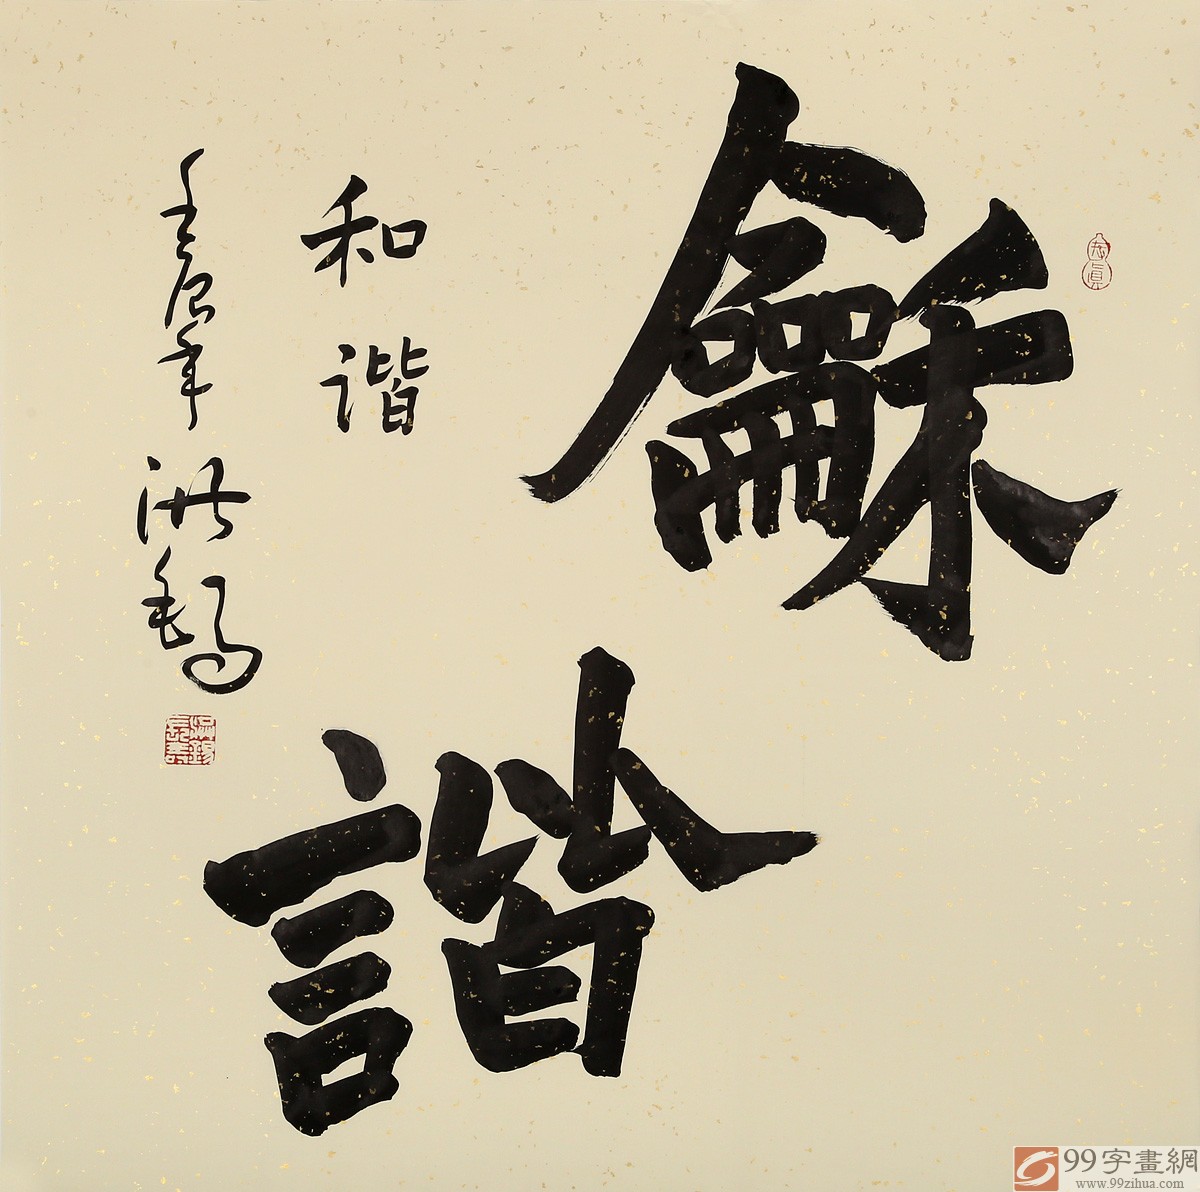 龢
諧
和谐
壬辰年
99字畫網
www.99zihua.com